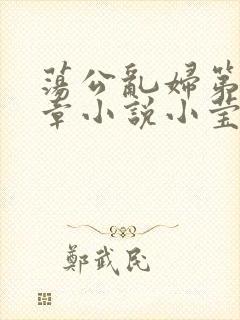 蕩公亂婦第
章小說小莹
鄭武民